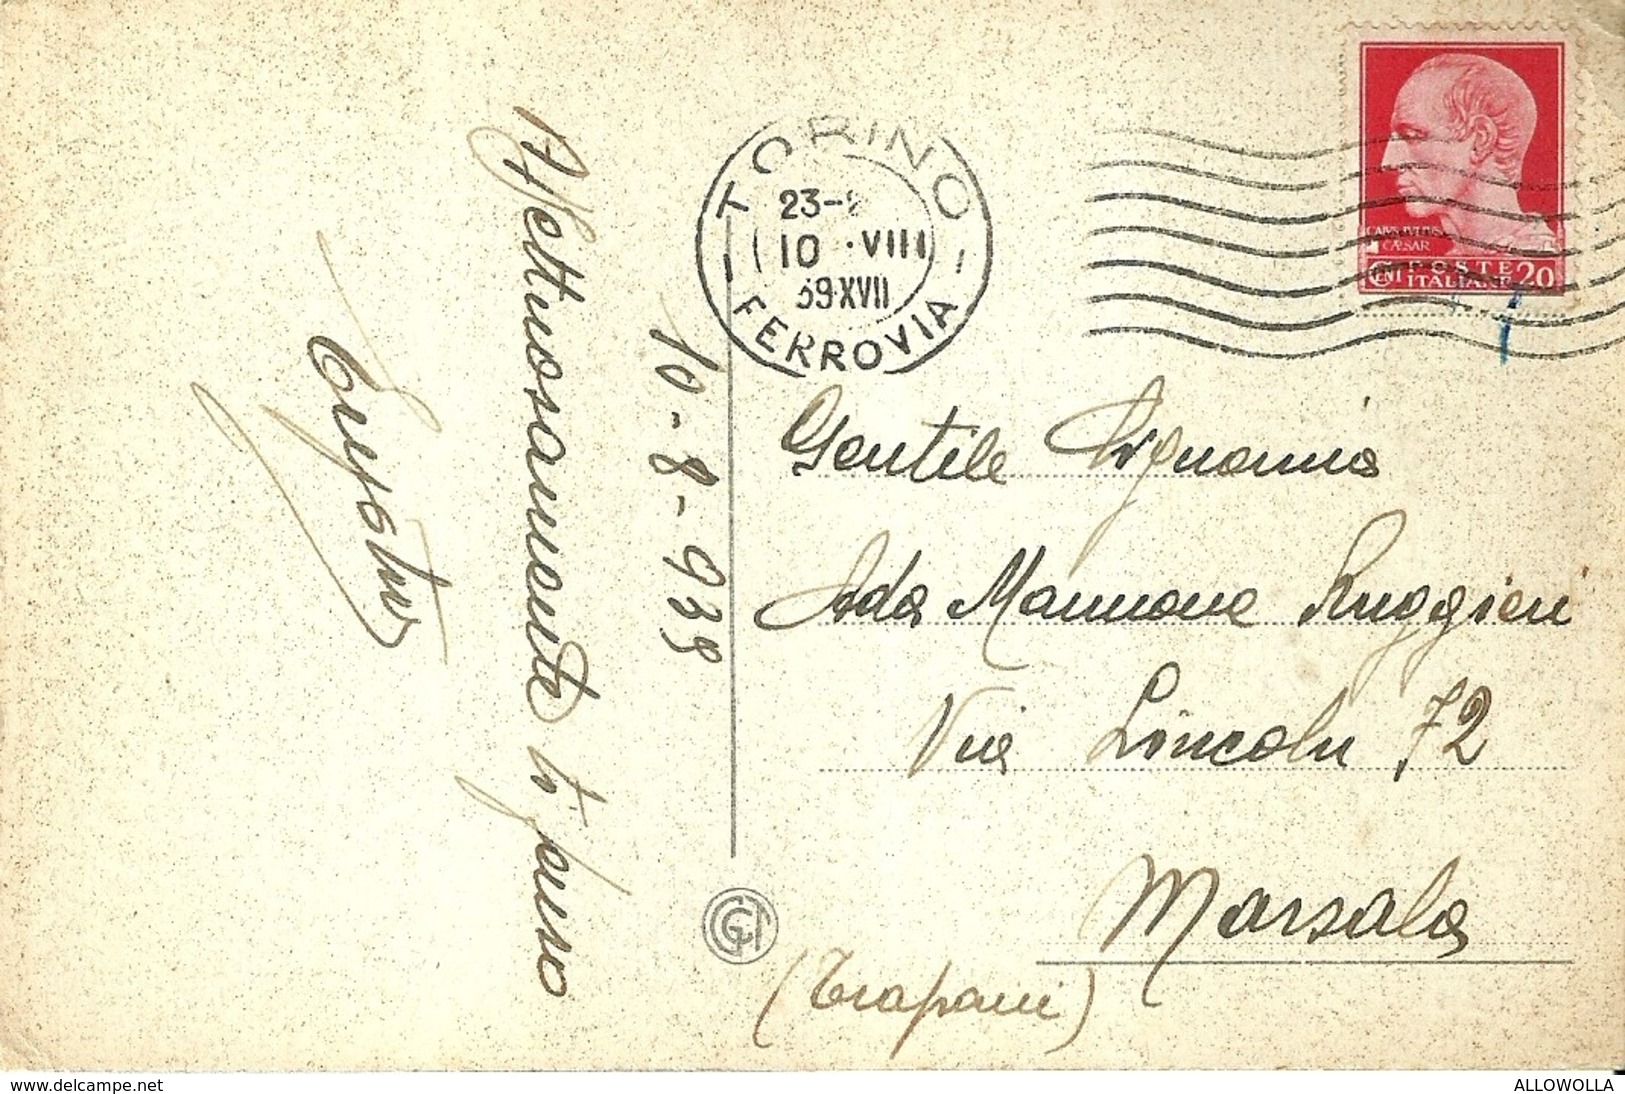 TORINO
23-
10 ·VIII
39·XVII
FERROVIA
CAIVS IVLIVS
CÆSAR
CENT POSTE ITALIANE 20
10-8-939
Affettuosamente ti penso
Gentile Signorina
Ada Mannone Ruggieri
Via Lincoln 72
Marsala
(Trapani)
www.delcampe.net
ALLOWOLLA